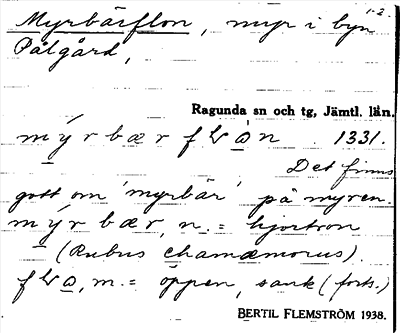 1-2.
Myrbärflon, myr i byn
Pålgård,
Ragunda sn och tg, Jämtl. län.
mýrbærflon 1331.
Det finns
gott om 'myrbär' på myren.
mýrbær, n. = hjortron
(Rubus chamæmorus).
flo, m. = öppen, sank (forts.)
BERTIL FLEMSTRÖM 1938.